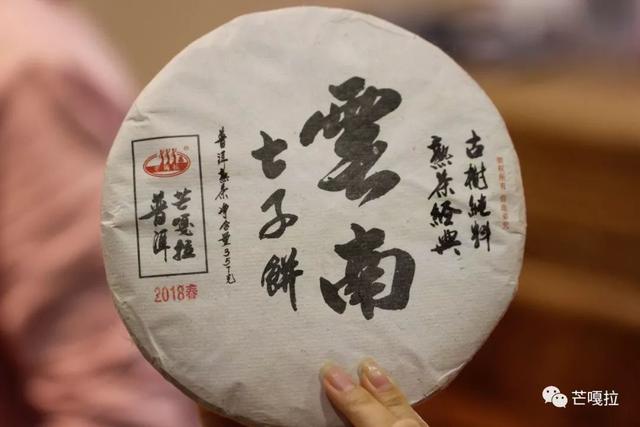 古樹純料
熟茶經典
雲南
七子餅
普洱熟茶净含量357克
芒嘎拉
普洱
2018春
芒嘎拉